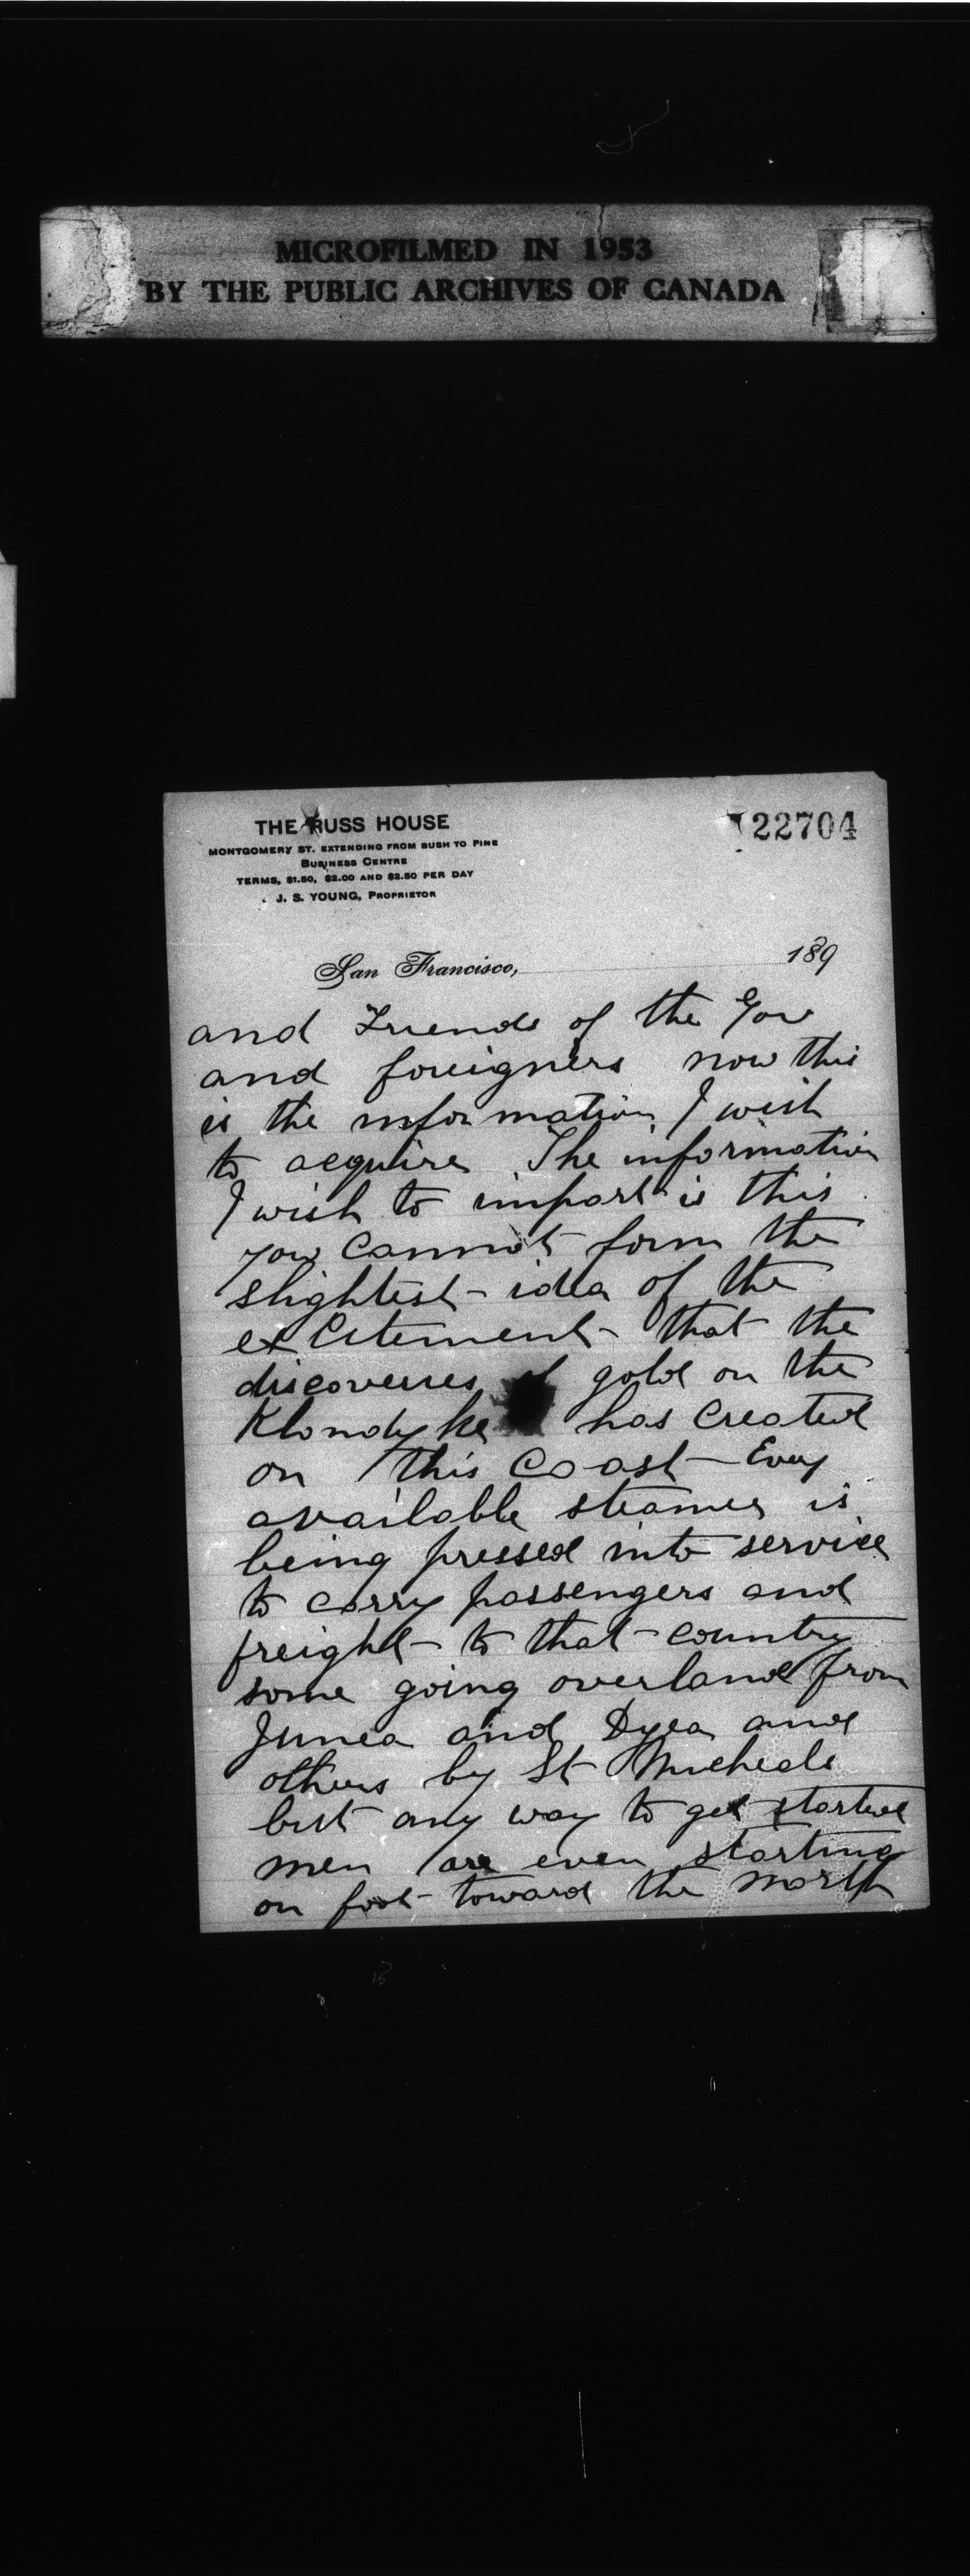 MICROFILMED IN 1953
BY THE PUBLIC ARCHIVES OF CANADA
THE RUSS HOUSE
MONTGOMERY ST. EXTENDING FROM BUSH TO PINE
BUSINESS CENTRE
TERMS, $1.50, $2.00 AND $2.50 PER DAY
J. S. YOUNG, PROPRIETOR
22704
San Francisco, 189
and Friends of the Gov
and foreigners now this
is the information I wish
to acquire The information
I wish to impart is this
you cannot form the
slightest idea of the
excitement that the
discoveries of gold on the
Klondyke has created
on this coast Every
available steamer is
being pressed into service
to carry passengers and
freight to that country
some going overland from
Junea and Dyea and
others by St Micheals
but any way to get started
men are even starting
on foot toward the north